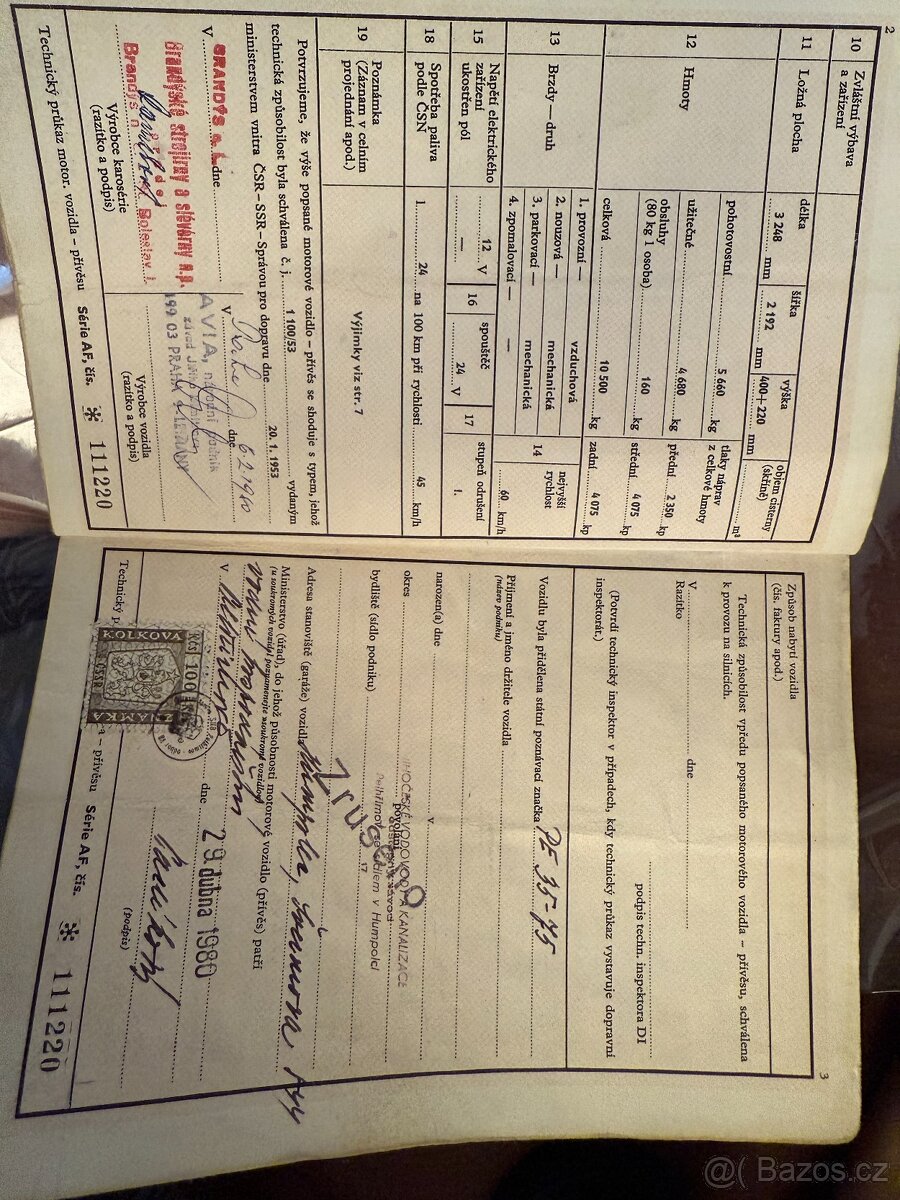 2
10 Zvláštní výbava
a zařízení
11 Ložná plocha
délka
3 248 mm
šířka
2 192 mm
výška
400+220 mm
objem cisterny
(skříně)
m³
12 Hmoty
pohotovostní
5 660 kg
užitečné
4 680 kg
obsluhy
(80 kg 1 osoba)
160 kg
celková
10 500 kg
tlaky náprav
z celkové hmoty
přední 2 350 kp
střední 4 075 kp
zadní 4 075 kp
13 Brzdy — druh
1. provozní — vzduchová
2. nouzová — mechanická
3. parkovací — mechanická
4. zpomalovací — —
14 nejvyšší
rychlost
60 km/h
15 Napětí elektrického
zařízení
ukostřen pól
12 V
—
16 spouštěč
24 V
17 stupeň odrušení
I.
18 Spotřeba paliva
podle ČSN
1. 24 na 100 km při rychlosti 45 km/h
19 Poznámka
(Záznam v celním
projednání apod.)
Výjimky viz str. 7
Potvrzujeme, že výše popsané motorové vozidlo – přívěs se shoduje s typem, jehož
technická způsobilost byla schválena č. j. 1 100/53 vydaným
ministerstvem vnitra ČSR – SSR – Správou pro dopravu dne 20. 1. 1953
V BRANDÝS n. L. dne
Brandýské strojírny a slévárny n.p.
Brandýs n. Boleslav I.
Výrobce karosérie
(razítko a podpis)
V dne 6.2.1980
AVIA, národní podnik
199 03 PRAHA
Výrobce vozidla
(razítko a podpis)
Technický průkaz motor. vozidla – přívěsu Série AF, čís. * 111220
3
Způsob nabytí vozidla
(čís. faktury apod.)
Technická způsobilost vpředu popsaného motorového vozidla – přívěsu, schválena
k provozu na silnicích.
V dne
Razítko
podpis techn. inspektora DI
(Potvrdí technický inspektor v případech, kdy technický průkaz vystavuje dopravní
inspektorát.)
Vozidlu byla přidělena státní poznávací značka PE 35-75
Příjmení a jméno držitele vozidla
(název podniku)
JIHOČESKÉ VODOVODY A KANALIZACE
závod
Pelhřimov se sídlem v Humpolci
17
narozen(a) dne v
okres povolání
bydliště (sídlo podniku)
Zrušeno
Adresa stanoviště (garáže) vozidla Humpolec,
Ministerstvo (úřad), do jehož působnosti motorové vozidlo (přívěs) patří
(u soukromých vozidel poznamenejte soukromé vozidlo)
V dne 29. dubna 1980
KOLKOVÁ
Kčs 100
ČSSR
ZNÁMKA
(podpis)
Technický p a – přívěsu Série AF, čís. * 111220
@( Bazoš.cz